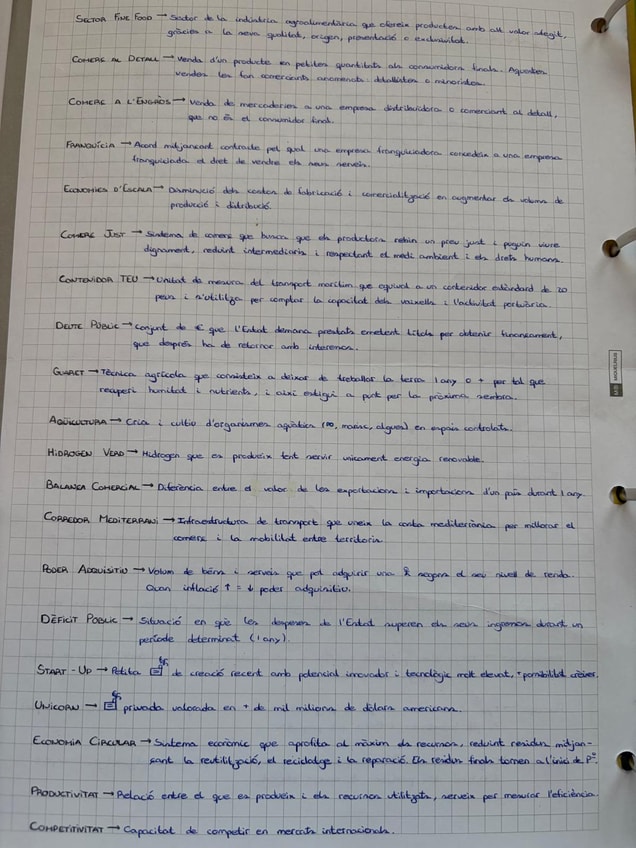 SECTOR FINE FOOD → Sector de la indústria agroalimentària que ofereix productes amb alt valor afegit,
gràcies a la seva qualitat, origen, presentació o exclusivitat.
COMERÇ AL DETALL → Venda d'un producte en petites quantitats als consumidors finals. Aquestes
vendes les fan comerciants anomenats detallistes o minoristes.
COMERÇ A L'ENGRÒS → Venda de mercaderies a una empresa distribuïdora o comerciant al detall,
que no és el consumidor final.
FRANQUÍCIA → Acord mitjançant contracte pel qual una empresa franquiciadora concedeix a una empresa
franquiciada el dret de vendre els seus serveis.
ECONOMIES D'ESCALA → Disminució dels costos de fabricació i comercialització en augmentar els volums de
producció i distribució.
COMERÇ JUST → Sistema de comerç que busca que els productors rebin un preu just i puguin viure
dignament, reduint intermediaris i respectant el medi ambient i els drets humans.
CONTENIDOR TEU → Unitat de mesura del transport marítim que equival a un contenidor estàndard de 20
peus i s'utilitza per comptar la capacitat dels vaixells i l'activitat portuària.
DEUTE PÚBLIC → Conjunt de € que l'Estat demana prestats emetent títols per obtenir finançament,
que després ha de retornar amb interessos.
GUARET → Tècnica agrícola que consisteix a deixar de treballar la terra 1 any o + per tal que
recuperi humitat i nutrients, i així estigui a punt per la pròxima sembra.
AQÜICULTURA → Cria i cultiu d'organismes aquàtics (, marisc, algues) en espais controlats.
HIDROGEN VERD → Hidrogen que es produeix fent servir unicament energia renovable.
BALANÇA COMERCIAL → Diferència entre el valor de les exportacions i importacions d'un país durant 1 any.
CORREDOR MEDITERRANI → Infraestructura de transport que uneix la costa mediterrània per millorar el
comerç i la mobilitat entre territoris.
PODER ADQUISITIU → Volum de béns i serveis que pot adquirir una segons el seu nivell de renda.
Quan inflació ↑ = ↓ poder adquisitiu.
DÈFICIT PÚBLIC → Situació en què les despeses de l'Estat superen els seus ingressos durant un
període determinat (1 any).
START-UP → Petita de creació recent amb potencial innovador i tecnològic molt elevat, + possibilitat créixer.
UNICORN → privada valorada en + de mil milions de dòlars americans.
ECONOMIA CIRCULAR → Sistema econòmic que aprofita al màxim els recursos, reduint residus mitjan-
sant la reutilització, el reciclatge i la reparació. Els residus finals tornen a l'inici de
PRODUCTIVITAT → Relació entre el que es produeix i els recursos utilitzats, serveix per mesurar l'eficiència.
COMPETITIVITAT → Capacitat de competir en mercats internacionals.